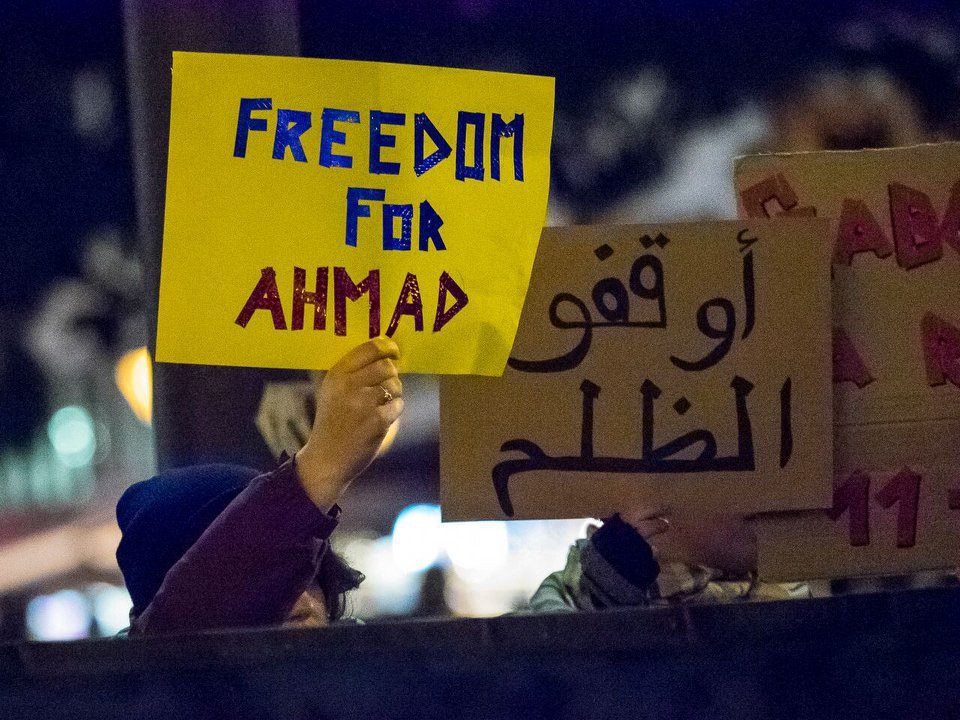 FREEDOM
FOR
AHMAD
أوقفو
الظلم
11